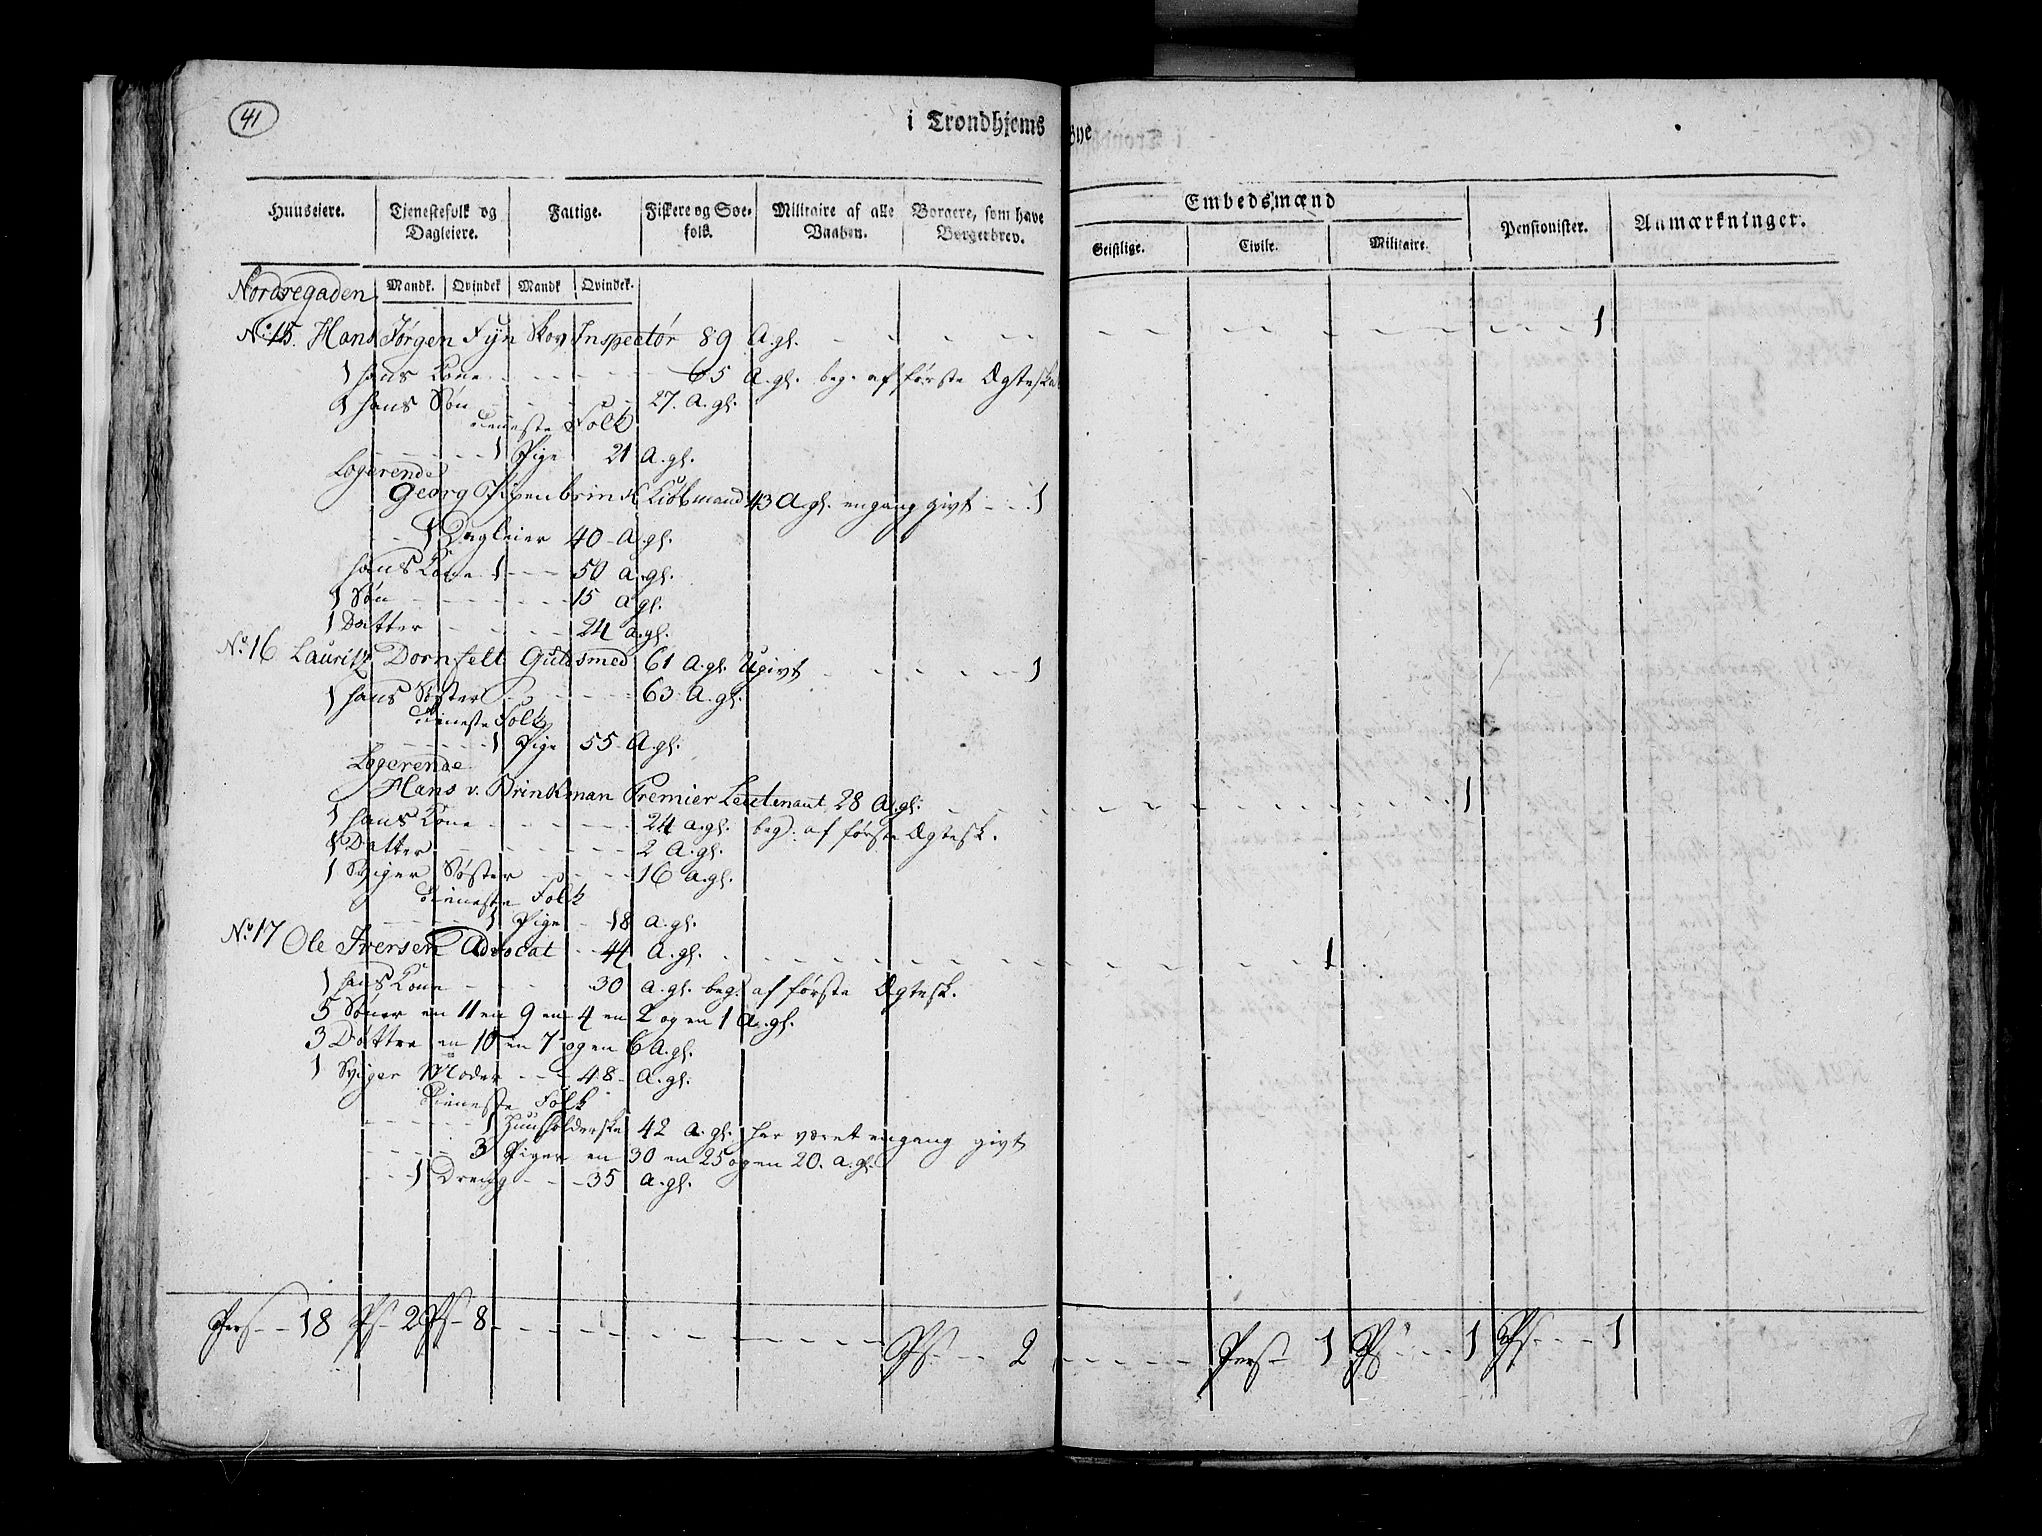 41
i Trondhjems Bye
Huuseiere. Tjenestefolk og Dagleiere. Fattige. Fiskere og Søefolk. Militaire af alle Vaaben. Borgere, som have Borgerbrev. Embedsmænd Pensionister. Anmærkninger.
Geistlige. Civile. Militaire.
Mandk. Qvindek Mandk Qvindek.
Nordregaden
No. 15. Hans Jørgen Fyn Skov Inspectør 89 A. gl. 1
1 hans Kone 65 A. gl. beg. af første Ægtesk
1 hans Søn 27. A. gl.
Tieneste Folk
1 Pige 21 A. gl.
Logerende
Georg Pipenbrink Kiøbmand 43 A. gl. engang givt 1
1 Dagleier 40 A. gl.
hans Kone 1 50 a. gl.
1 Søn 15 a. gl.
1 Datter 24 a. gl.
No. 16 Lauritz Dornfelt Guldsmed 61 A. gl. Ugivt 1
1 hans Søster 63 A. gl.
Tieneste Folk
1 Pige 55 A. gl.
Logerende
Hans v. Brinkman Premier Leutenant 28 A. gl. 1
1 hans Kone 24 a. gl. beg. af første Ægtesk.
1 Datter 2 A. gl.
1 Sviger Søster 16 a. gl.
Tieneste Folk
1 Pige 18 a. gl.
No. 17 Ole Iversen Advocat 44 A. gl. 1
1 hans Kone 30 a. gl. beg. af første Ægtesk.
5 Søner en 11 en 9 en 4 en 2 og en 1 A. gl.
3 Døttre en 10 en 7 og en 6 A. gl.
1 Sviger Moder 48 A. gl.
Tieneste Folk
1 Huusholderske 42 a. gl. har været engang givt
3 Piger en 30 en 25 og en 20. a. gl.
1 Dreng 35 a. gl.
Pers 18 Ps 2 Ps 8 Ps 2 Pers 1 Ps 1 Ps 1